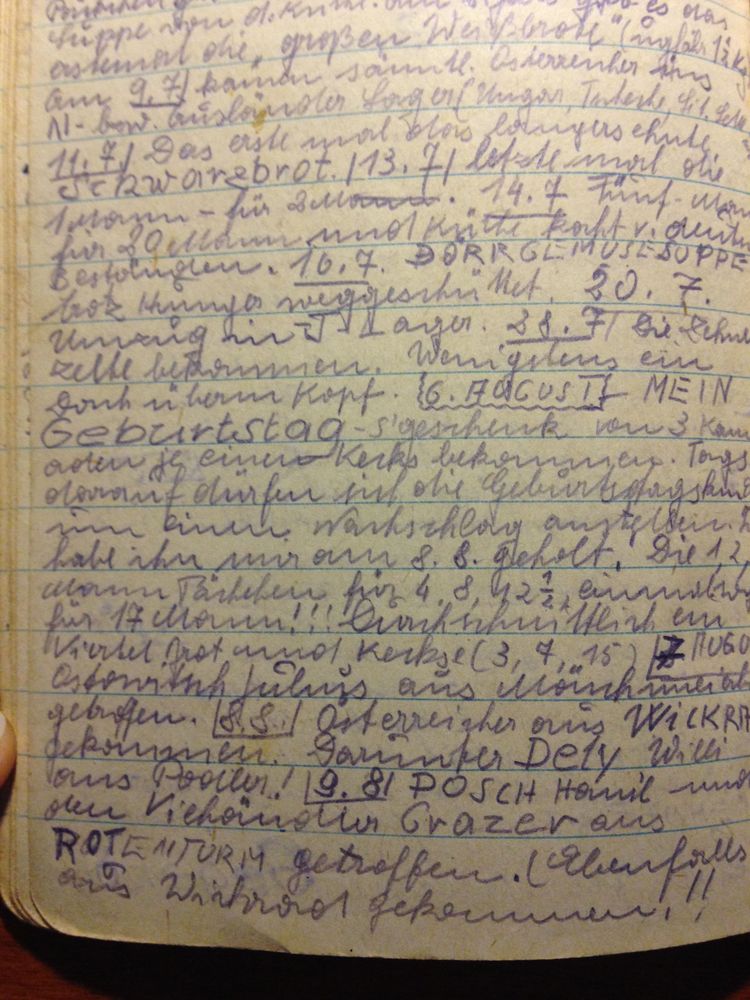 Suppe von d. Küche. am gab es das
erstemal die "großen Weißbrote" (ungefähr 1½ Kg
am 9.7| kamen sämtl. Österreicher ins
N- bzw. Ausländer Lager (Ungar, Tscheche,
11.7| Das erste mal das langersehnte
Schwarzbrot. |13.7| letzte mal die
1 Mann - für 2 Mann. 14.7 Fünf-Man
für 20 Mann und Küche kocht v. deut
Beständen. 16.7. DÖRRGEMÜSESUPPE
trotz Hunger weggeschüttet. 20. 7.
Umzug in Lager. 28.7| Die
zelte bekommen. Wenigstens ein
Dach überm Kopf. {6. AUGUST} MEIN
Geburtstag-s'geschenk von 3 Kam
aden je einen Kecks bekommen. Tags
darauf dürfen sich die Geburtsdagskind
um einen Nachschlag anstellen.
habe ihn mir am 8. 8. geholt! Die 12,
Mann Täschchen für 4, 8, 12½, einmal
für 17 Mann!!! Durchschnittlich ein
Viertel Brot und Keckse (3, 7, 15) |7 AUGU
Julius aus Mönchmeierh
getroffen. |8.8.| Österreicher aus WICKRA
gekommen. Darunter Dely Willi
aus Podler! |9.8| POSCH Hansl und
den Viehändler Grazer aus
ROTENTURM getroffen. (Ebenfalls
aus Wickrad gekommen!!!